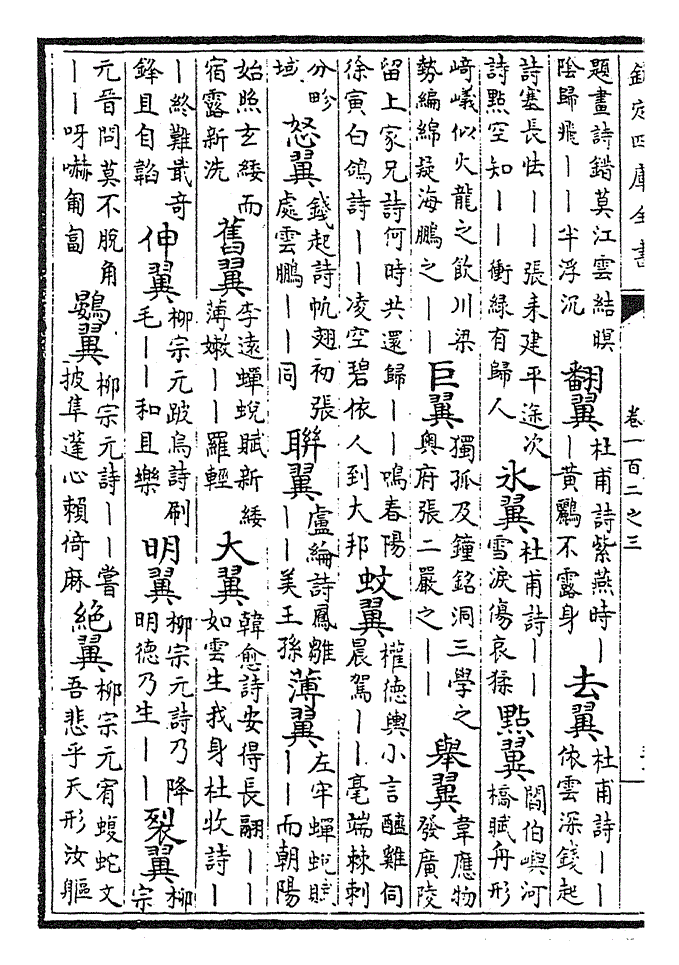 欽定四庫全書 卷一百二之三
題畫詩錯莫江雲結暝陰歸飛——半浮沉 翻翼 杜甫詩紫燕時——黃鸝不露身 去翼 杜甫詩——依雲深錢起
詩塞長怯——張耒建平途次詩點空知——衝綠有歸人 氷翼 杜甫詩——雪淚傷哀猱 點翼 閻伯嶼河橋賦舟形
崎嶬似火龍之飲川梁勢編綿疑海鵬之—— 巨翼 獨孤及鐘銘洞三學之奧府張二嚴之—— 舉翼 韋應物發廣陵
留上家兄詩何時共還歸——鳴春陽徐寅白鴿詩——凌空碧依人到大邦 蚊翼 權德輿小言醯雞伺晨駕——毫端棘刺
分畛域 怒翼 錢起詩帆翅初張處雲鵬——同 聯翼 盧綸詩鳳雛——美王孫 薄翼 左牢蟬蛻賦——而朝陽
始照玄緌而宿露新洗 舊翼 李遠蟬蛻賦新緌薄嫩——羅輕 大翼 韓愈詩安得長翮——如雲生我身杜牧詩—
—終難最奇鋒且自韜 伸翼 柳宗元跛烏詩刷毛——和且樂 明翼 柳宗元詩乃降明德乃生—— 裂翼 柳宗
元晉問莫不脫角——呀嚇匍匐 鷃翼 柳宗元詩——嘗披隼蓬心賴倚麻 絕翼 柳宗元宥蝮蛇文吾悲乎天形汝軀